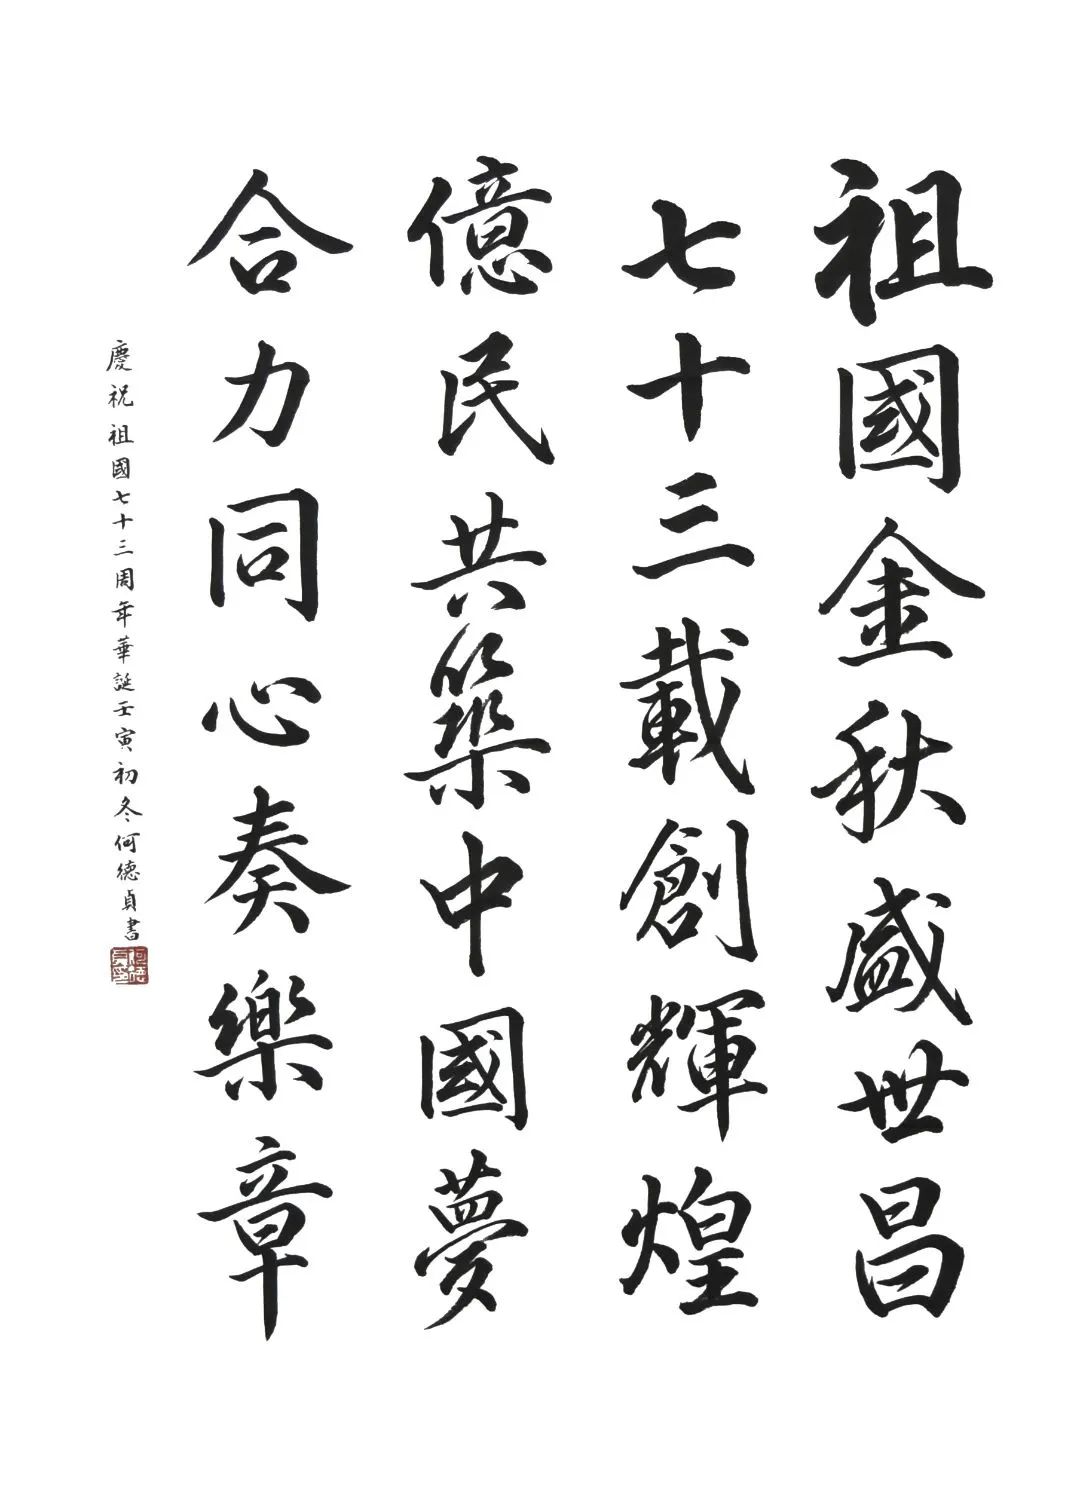 祖國金秋盛世昌
七十三載創輝煌
億民共築中國夢
合力同心奏樂章
慶祝祖國七十三周年華誕壬寅初冬何德貞書